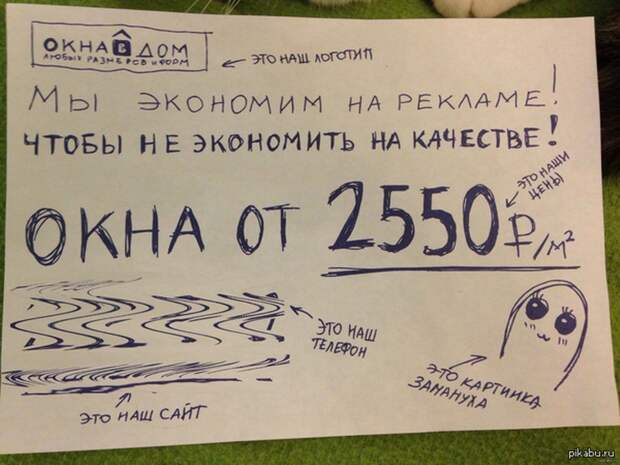 ОКНА В ДОМ
ЛЮБЫХ РАЗМЕРОВ И ФОРМ
ЭТО НАШ ЛОГОТИП
МЫ ЭКОНОМИМ НА РЕКЛАМЕ!
ЧТОБЫ НЕ ЭКОНОМИТЬ НА КАЧЕСТВЕ!
ЭТО НАШИ
ЦЕНЫ
ОКНА ОТ 2550 ₽/М²
ЭТО НАШ
ТЕЛЕФОН
ЭТО НАШ САЙТ
ЭТО КАРТИНКА
ЗАМАНУХА
pikabu.ru